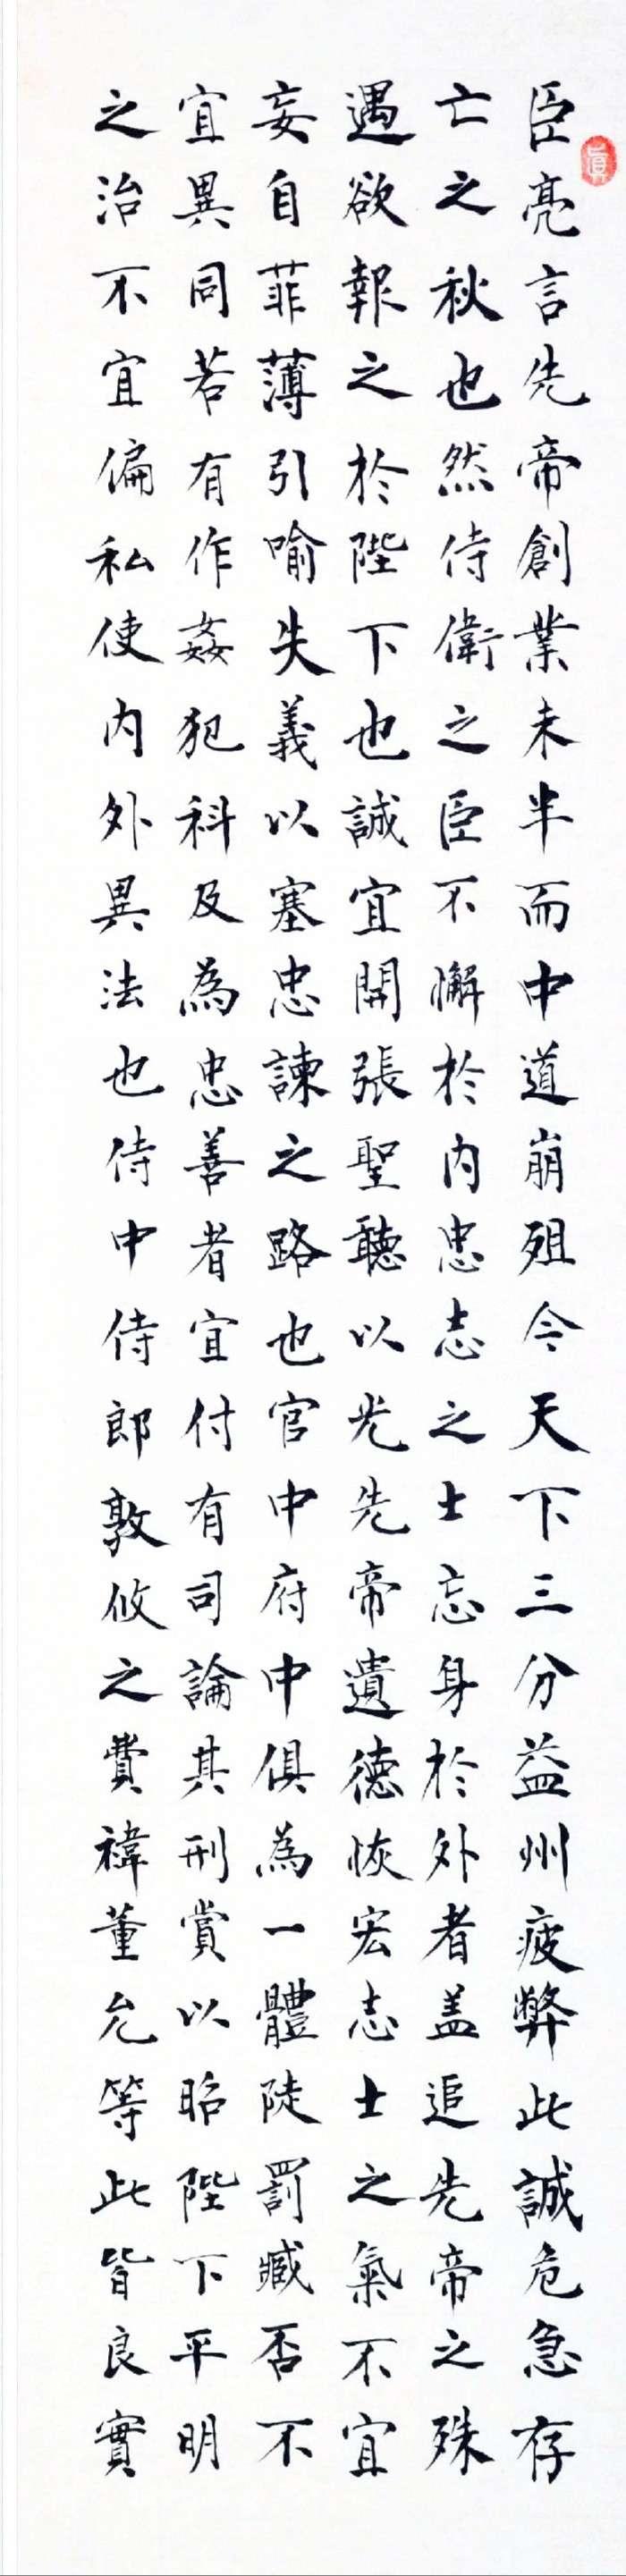 眞
臣亮言先帝創業未半而中道崩殂今天下三分益州疲弊此誠危急存
亡之秋也然侍衛之臣不懈於内忠志之士忘身於外者盖追先帝之殊
遇欲報之於陛下也誠宜開張聖聽以光先帝遺德恢宏志士之氣不宜
妄自菲薄引喻失義以塞忠諫之路也官中府中俱為一體陡罰臧否不
宜異同若有作姦犯科及為忠善者宜付有司論其刑賞以昭陛下平明
之治不宜偏私使内外異法也侍中侍郎敦攸之費禕董允等此皆良實